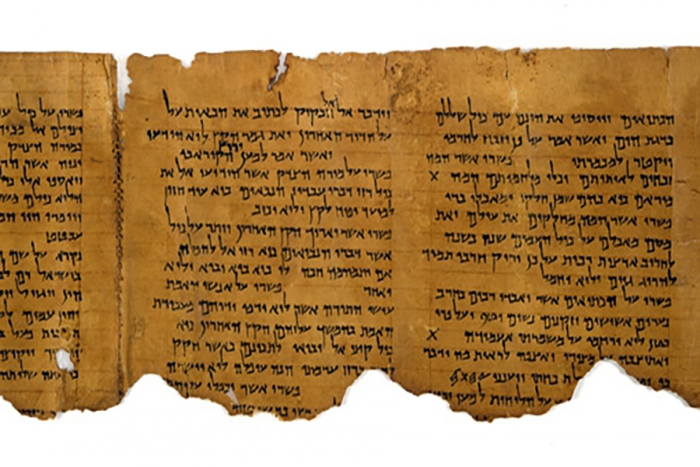 הכתיאים ויוסיפו את הונם עם כול שללם
כדגת הים ואשר אמר על כן יזבח לחרמו
ויקטר למכמרתו פשרו אשר המה
זבחים לאותותם וכלי מלחמותם המה
מוראם כיא בהם שמן חלקו ומאכלו ברי
פשרו אשר המה מחלקים את עולם ואת
מסם מאכלם על כול העמים שנה בשנה
לחריב ארצות רבות על כן יריק חרבו תמיד
להרוג גוים ולוא יחמל
פשרו על הכתיאים אשר יאבדו רבים בחרב
נערים אשישים וזקנים נשים וטף ועל פרי
בטן לוא ירחמו על משמרתי אעמודה
ואתיצבה על מצורי ואצפה לראות מה ידבר
תוכחתי ויענני יהוה
על הלוחות למען
וידבר אל אל חבקוק לכתוב את הבאות על
על הדור האחרון ואת גמר הקץ לוא הודעו
ואשר אמר למען ירוץ הקורא בו
פשרו על מורה הצדק אשר הודיעו אל את
כול רזי דברי עבדיו הנבאים כיא עוד חזון
למועד יפיח לקץ ולוא יכזב
פשרו אשר יארוך הקץ האחרון ויתר על כול
אשר דברו הנביאים כיא רזי אל להפלה
אם יתמהמה חכה לו כיא בוא יבוא ולוא
יאחר פשרו על אנשי האמת
עושי התורה אשר לוא ירפו ידיהם מעבודת
האמת בהמשך עליהם הקץ האחרון כיא
כול קיצי אל יבואו לתכונם כאשר חקק
ערמתו הנה עופלה לוא יושרה
פשרו אשר יכפלו עליהם
פשרו על כול
יצילם אל מבית
במורה הצדק
ינוה אשר
ויאספו
הלוא כולם
ויומרו הוי
עבטט
נקרא על
בישראל רם
הון ויגזול
והון עמים